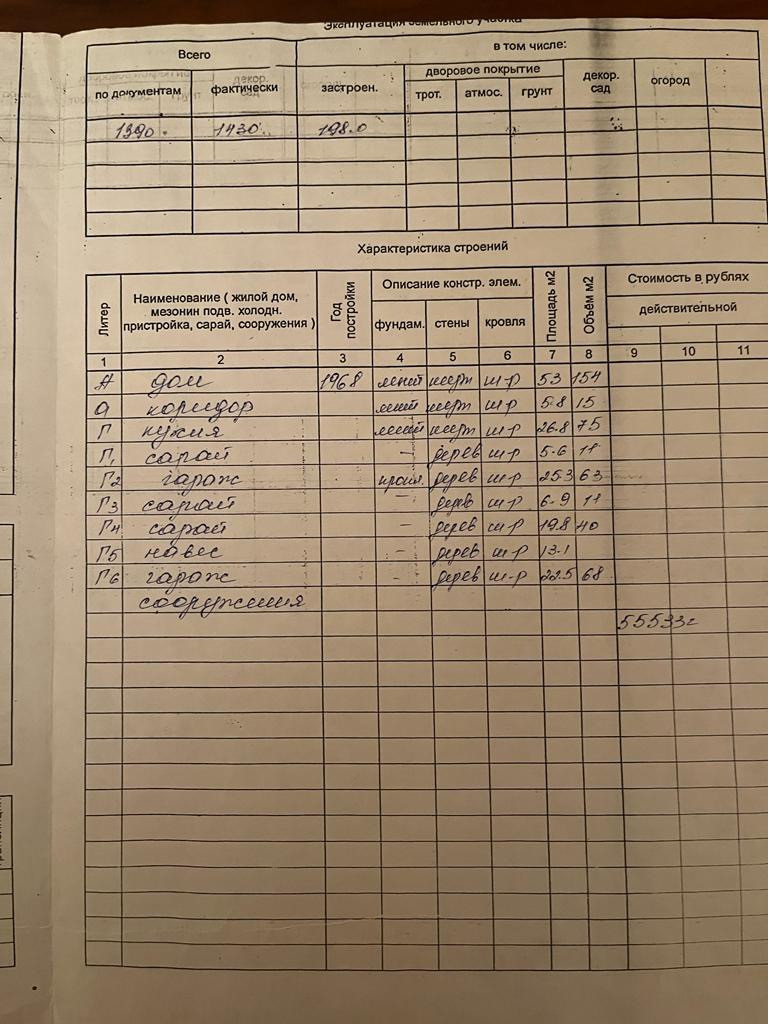 Эксплуатация земельного участка
Всего в том числе:
по документам фактически застроен. дворовое покрытие декор. сад огород
трот. атмос. грунт
1390 1430 198.0
Характеристика строений
Литер Наименование ( жилой дом, мезонин подв. холодн. пристройка, сарай, сооружения ) Год постройки Описание констр. элем. Площадь м2 Объём м2 Стоимость в рублях
фундам. стены кровля действительной
1 2 3 4 5 6 7 8 9 10 11
А дом 1968 ш-р 53 154
а коридор ш-р 5.8 15
Г кухня ш-р 26.8 75
Г1 сарай – дерев ш-р 5.6 11
Г2 гараж дерев ш-р 25.3 63
Г3 сарай – дерев ш-р 6.9 11
Г4 сарай – дерев ш-р 19.8 40
Г5 навес – дерев ш-р 13.1
Г6 гараж – дерев ш-р 22.5 68
сооружения
55533